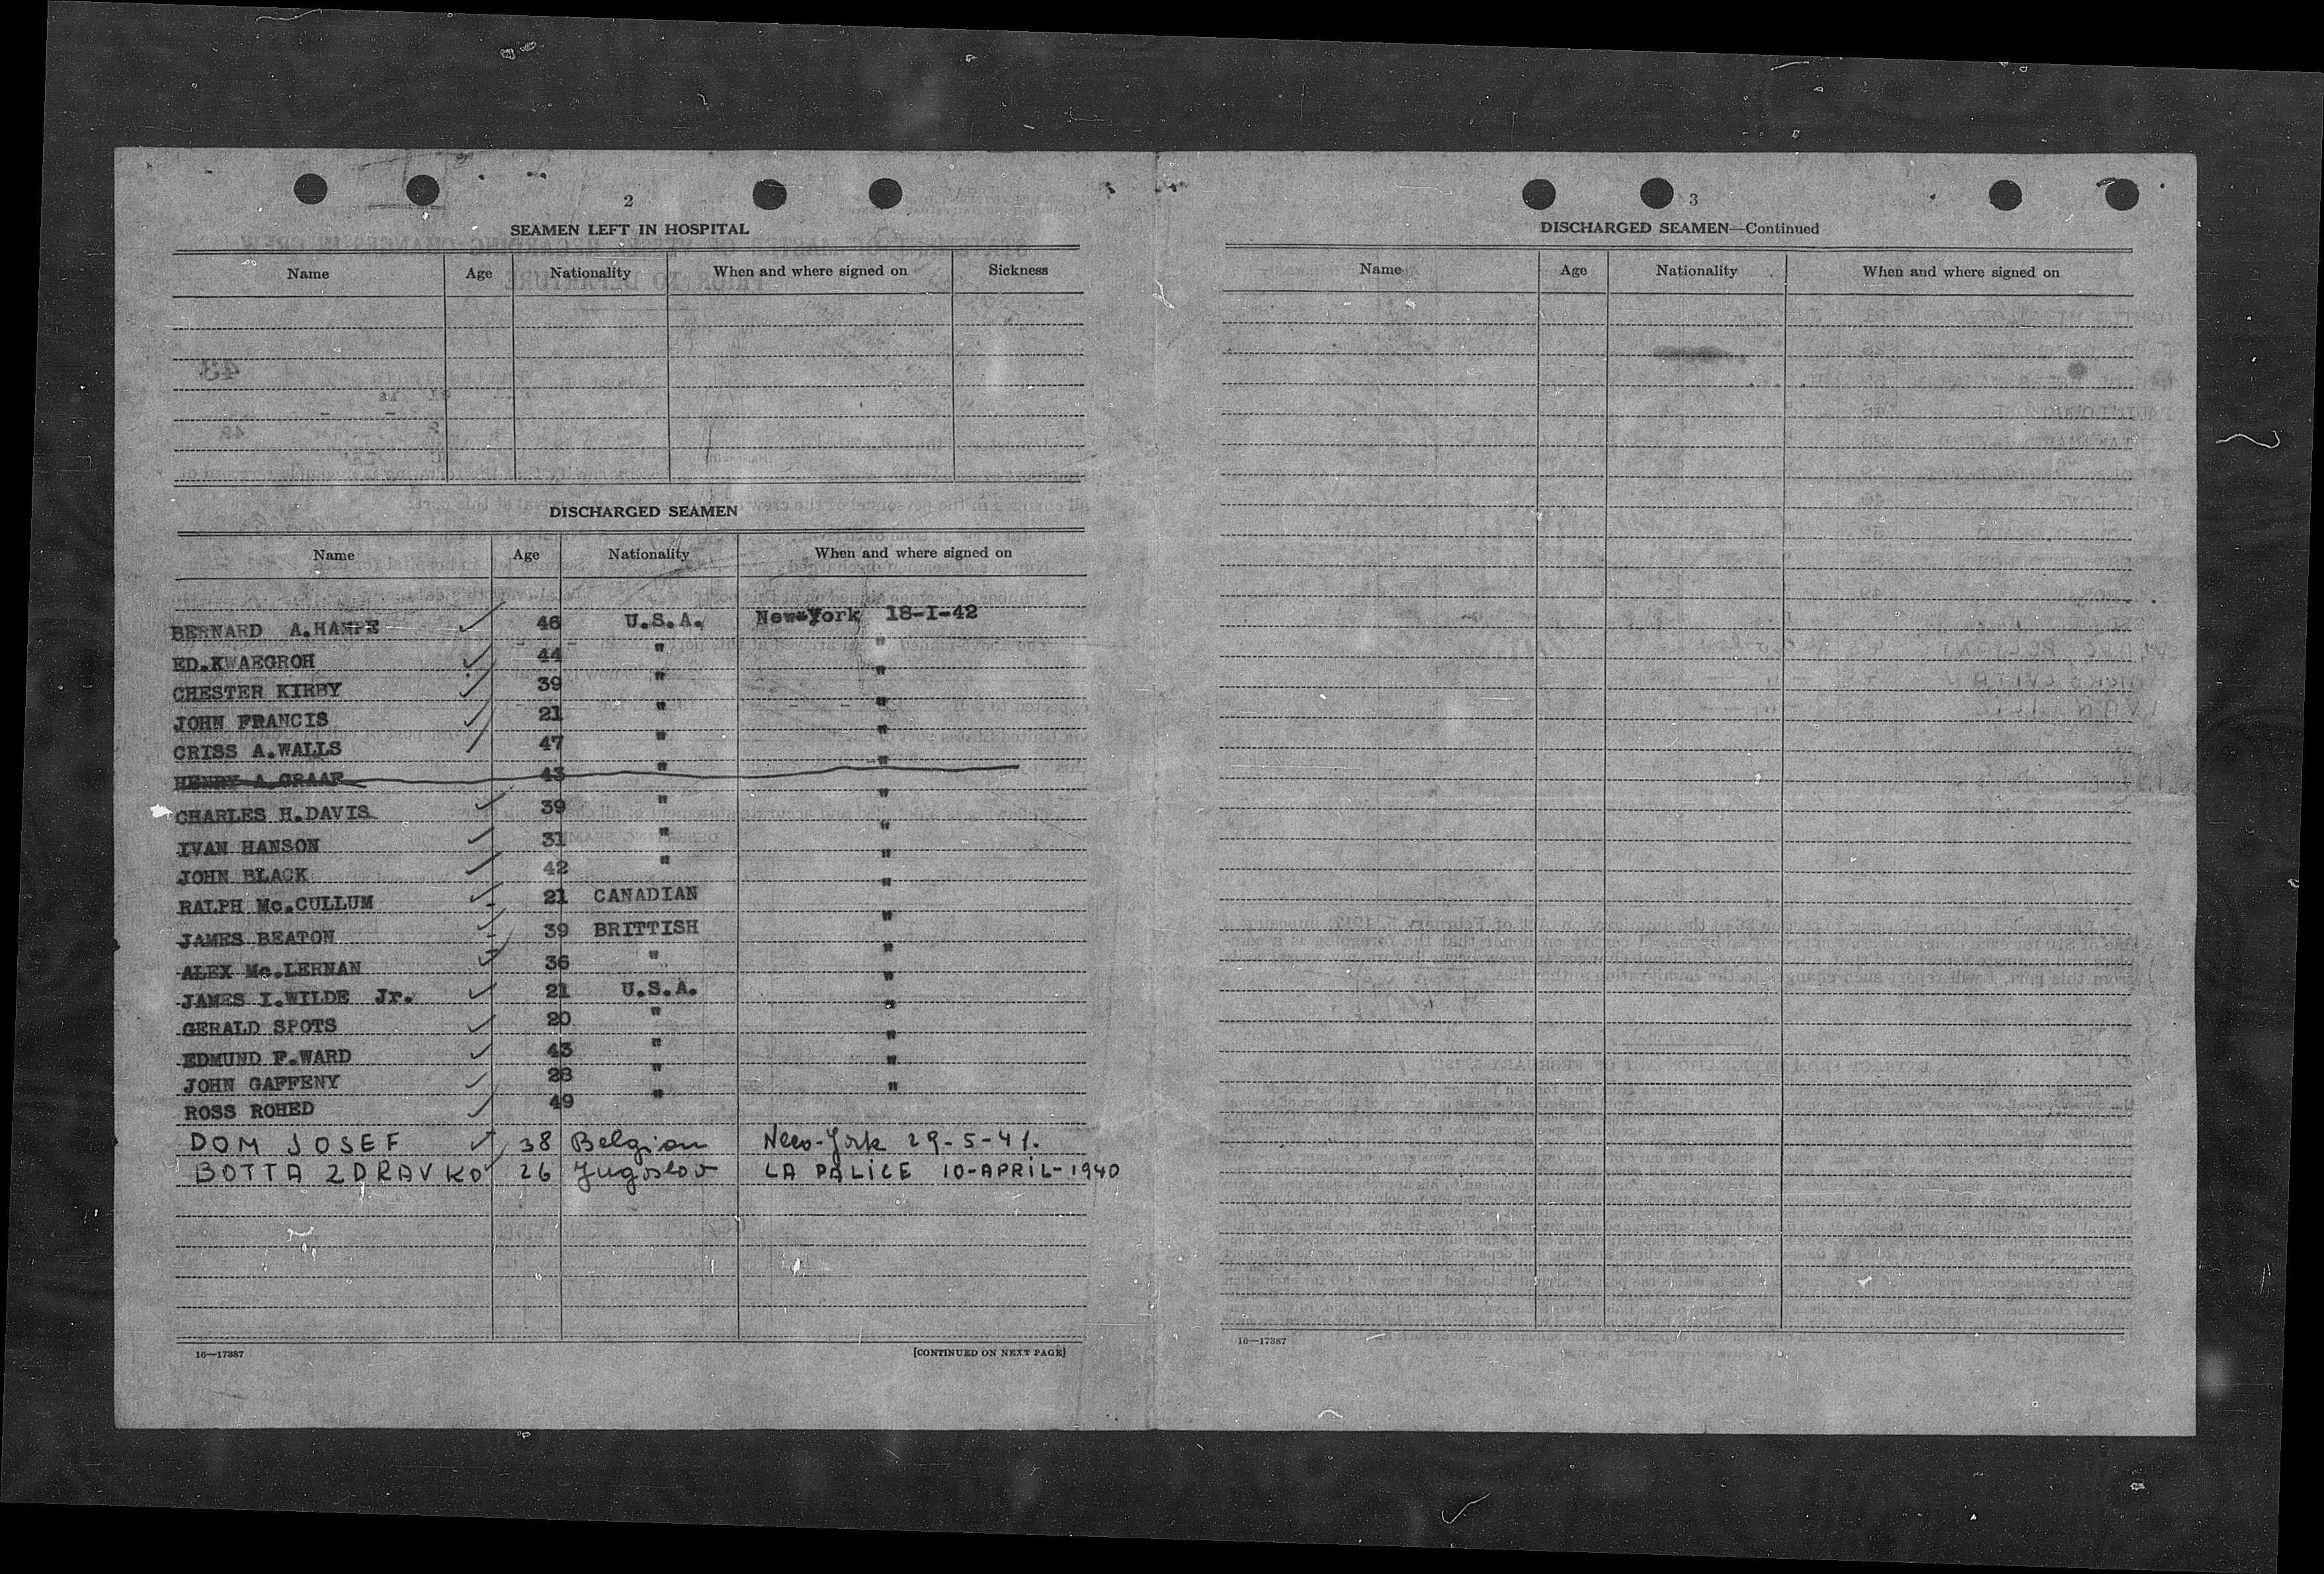 2
SEAMEN LEFT IN HOSPITAL
Name Age Nationality When and where signed on Sickness
DISCHARGED SEAMEN
Name Age Nationality When and where signed on
BERNARD A.HAMPE ✓ 46 U.S.A. New-York 18-I-42
ED.KWAEGROH ✓ 44 " "
CHESTER KIRBY ✓ 39 " "
JOHN FRANCIS ✓ 21 " "
CRISS A.WALLS ✓ 47 " "
HENRY A.GRAAF 43 " "
CHARLES H.DAVIS ✓ 39 " "
IVAN HANSON ✓ 31 " "
JOHN BLACK ✓ 42 " "
RALPH Mc.CULLUM ✓ 21 CANADIAN "
JAMES BEATON ✓ 39 BRITTISH "
ALEX Mc.LERNAN ✓ 36 " "
JAMES I.WILDE Jr. ✓ 21 U.S.A. "
GERALD SPOTS ✓ 20 " "
EDMUND F.WARD ✓ 43 " "
JOHN GAFFENY ✓ 28 " "
ROSS ROHED ✓ 49 " "
DOM JOSEF ✓ 38 Belgian New-York 29-5-41.
BOTTA ZDRAVKO ✓ 26 Jugoslov LA PALICE 10-APRIL-1940
16—17387 [CONTINUED ON NEXT PAGE]
3
DISCHARGED SEAMEN—Continued
Name Age Nationality When and where signed on
16—17387